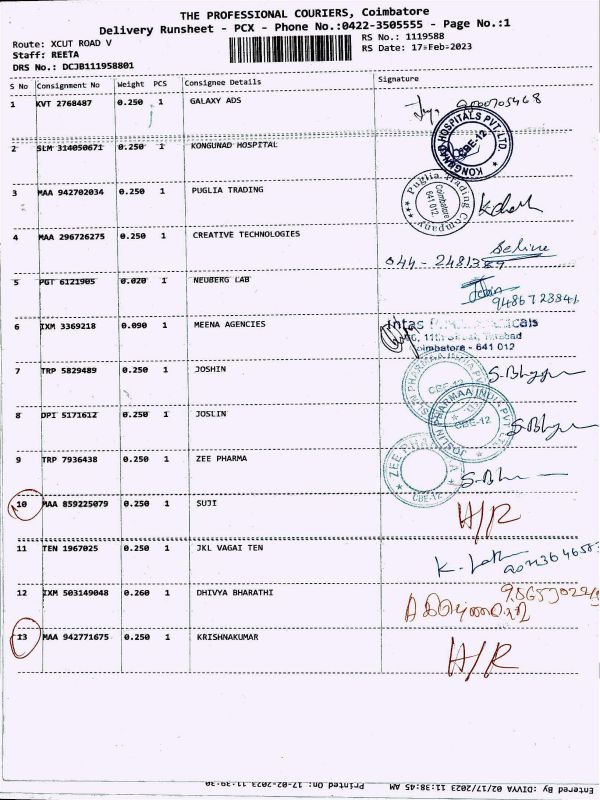 THE PROFESSIONAL COURIERS, Coimbatore
Delivery Runsheet - PCX - Phone No.:0422-3505555 - Page No.:1
Route: XCUT ROAD V
RS No.: 1119588
Staff: REETA
RS Date: 17-Feb-2023
DRS No.: DCJB111958801
S No Consignment No Weight PCS Consignee Details Signature
1 KVT 2768487 0.250 1 GALAXY ADS
KONGUNAD HOSPITALS PVT. LTD. CBE-12
2 SLM 314050671 0.250 1 KONGUNAD HOSPITAL
3 MAA 942702034 0.250 1 PUGLIA TRADING
Puglia Trading Company Coimbatore 641 012
4 MAA 296726275 0.250 1 CREATIVE TECHNOLOGIES
044-2481389
5 PGT 6121905 0.020 1 NEUBERG LAB
9486723841
6 IXM 3369218 0.090 1 MEENA AGENCIES
Intas
Coimbatore - 641 012
7 TRP 5829489 0.250 1 JOSHIN
PHARMAA INDIA PVT CBE-12
8 DPI 5171612 0.250 1 JOSLIN
JOSLIN PHARMAA INDIA PVT CBE-12
9 TRP 7936438 0.250 1 ZEE PHARMA
ZEE PHARMA CBE-12
10 MAA 859225079 0.250 1 SUJI H/R
11 TEN 1967025 0.250 1 JKL VAGAI TEN
12 IXM 503149048 0.260 1 DHIVYA BHARATHI
13 MAA 942771675 0.250 1 KRISHNAKUMAR H/R
Entered By :DIVYA 02/17/2023 11:38:45 AM
Printed On: 17-02-2023 11:39:30